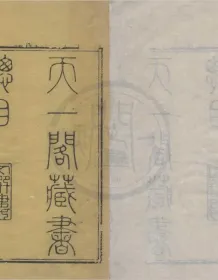 天一閣藏書
總目